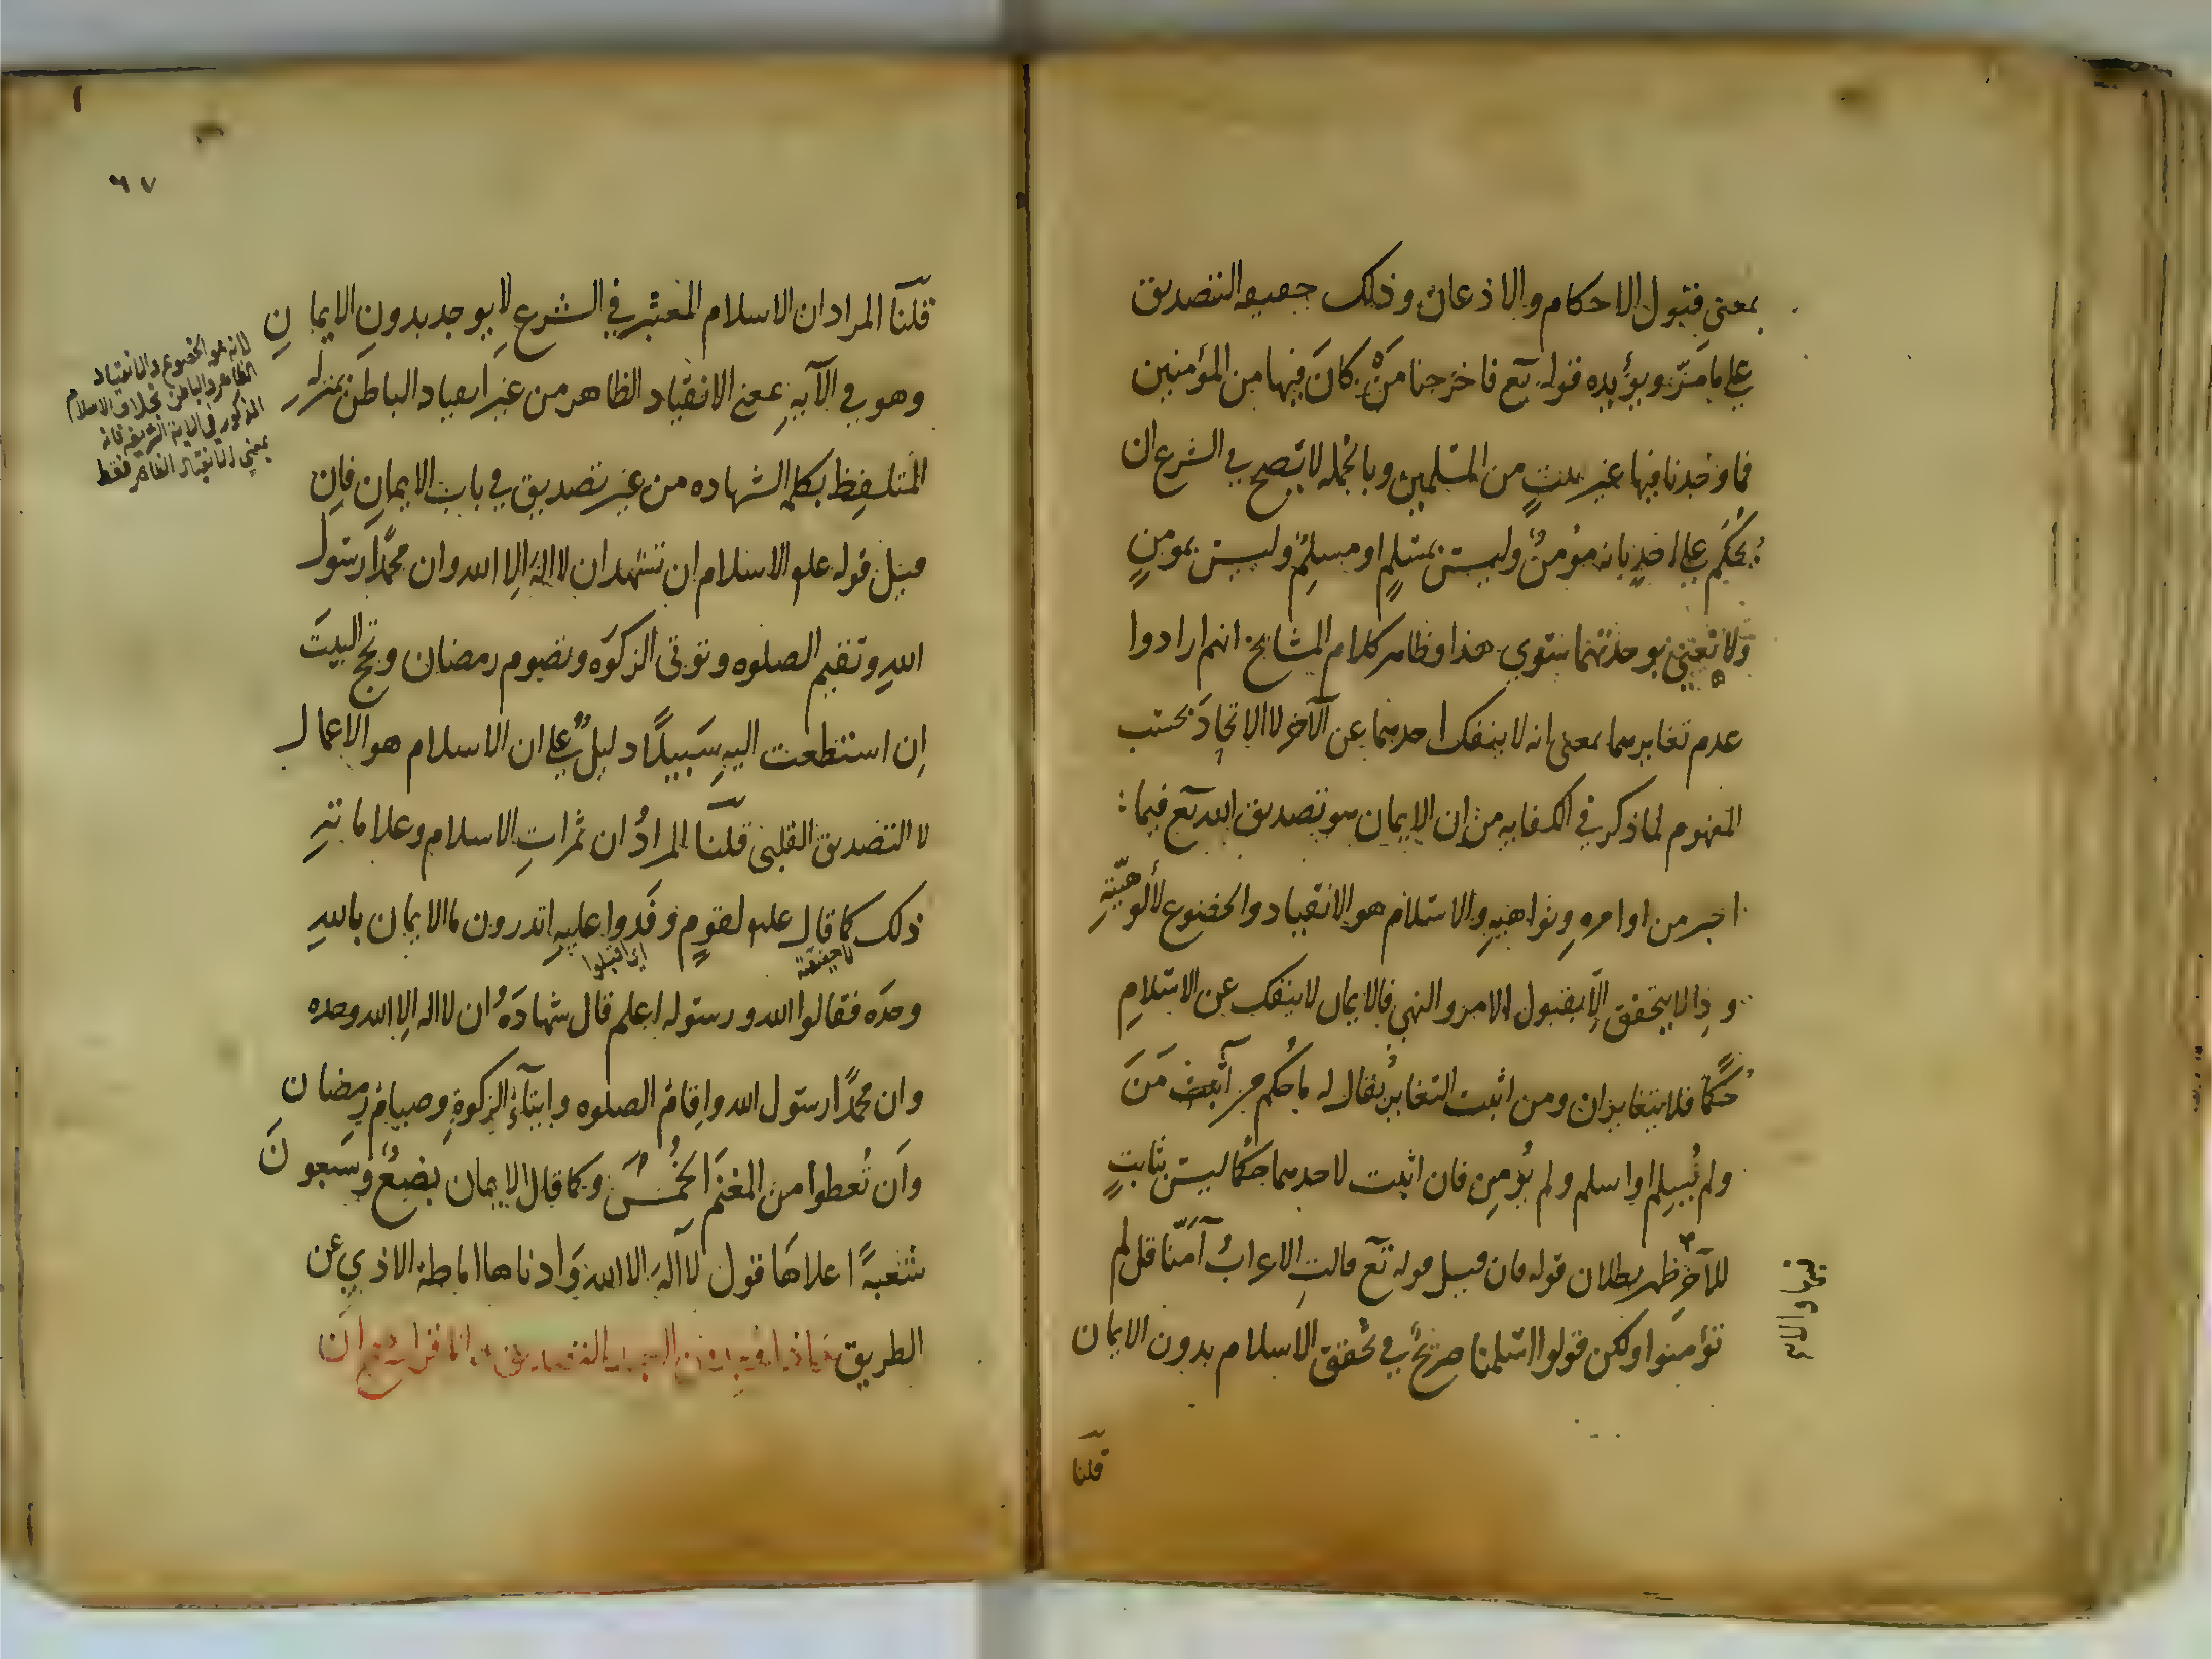 بمعنى قبول الاحكام والاذعان وذلك حقيقة التصديق
على ما مرّ ويؤيده قوله تع فاخرجنا مَنْ كانَ فيها من المؤمنين
فما وجدنا فيها غير بيتٍ من المسلمين وبالجملة لا يصح في الشرع ان
يُحكَم على احدٍ بانه مؤمنٌ وليس بمسلمٍ او مسلمٌ وليس بمومنٍ
ولا نعني بوحدتهما سوى هذا وظاهر كلام المشايخ انهم ارادوا
عدم تغايرهما بمعنى انه لا ينفك احدهما عن الآخر لا الاتحادَ بحسب
المفهوم لما ذكر في الكفاية من ان الايمان هو تصديق الله تع فيما
اخبر من اوامرهِ ونواهيهِ والاسلام هو الانقياد والخضوع لألوهيّتهِ
وذا لا يتحقق الّا بقبول الامر والنهي فالايمان لا ينفك عن الاسلامِ
حُكمًا فلا يتغايران ومن اثبت التغاير يُقال له ما حُكم من آمن
ولم يُسلِم او اسلم ولم يُومِن فان اثبت لاحدهما حكمًا ليس بثابتٍ
للآخر ظهر بطلان قوله فان قيل قوله تع قالتِ الاعرابُ آمَنّا قل لم
تؤمنوا ولكن قولوا اسلمنا صريحٌ في تحقق الاسلام بدون الايمان
قلنا
٦٧
قلنا المراد ان الاسلام المعتبر في الشرع لا يوجد بدونِ الايمانِ
وهو في الآيةِ بمعنى الانقياد الظاهر من غير انقياد الباطن بمنزلة
المُتلفِظ بكلمة الشهاده من غير تصديق في باب الايمانِ فان
قيل قوله علم الاسلام ان تشهد ان لا الهَ الِا الله وان محمّدًا رسول
اللهِ وتقيم الصلوه وتوتى الزكوَه وتصوم رمضان وتحج البيتَ
اِن استطعت اليهِ سَبيلًا دليلٌ على ان الاسلام هو الاعمال
لا التصديق القلبى قلنا المرادُ ان ثمراتِ الاسلام وعلاماتهِ
ذلك كما قال علم لقومٍ وفَدوا عليهِ اتدرون ما الايمان باللهِ
وحدَه فقالوا الله ورسوله اعلم قال شهادَةُ ان لا اله الِا الله وحده
وان محمّدًا رسول الله واِقامُ الصلوه وايتآءُ الزكوةِ وصيام رمضان
واَن تُعطوا من المغنَم الخُمسَ وكما قال الايمان بضعٌ وسَبعونَ
شعبةً اعلاهَا قول لا آلهَ الا الله وَادناها اماطة الاذي عن
الطريق
لانه هو الخضوع والانقياد
الظاهر والباطن بخلاف الاسلام
المذكور في الاية الشريفه فانه
بمعنى الانقياد الظاهر فقط
لا حقيقته
اى اقبلوا